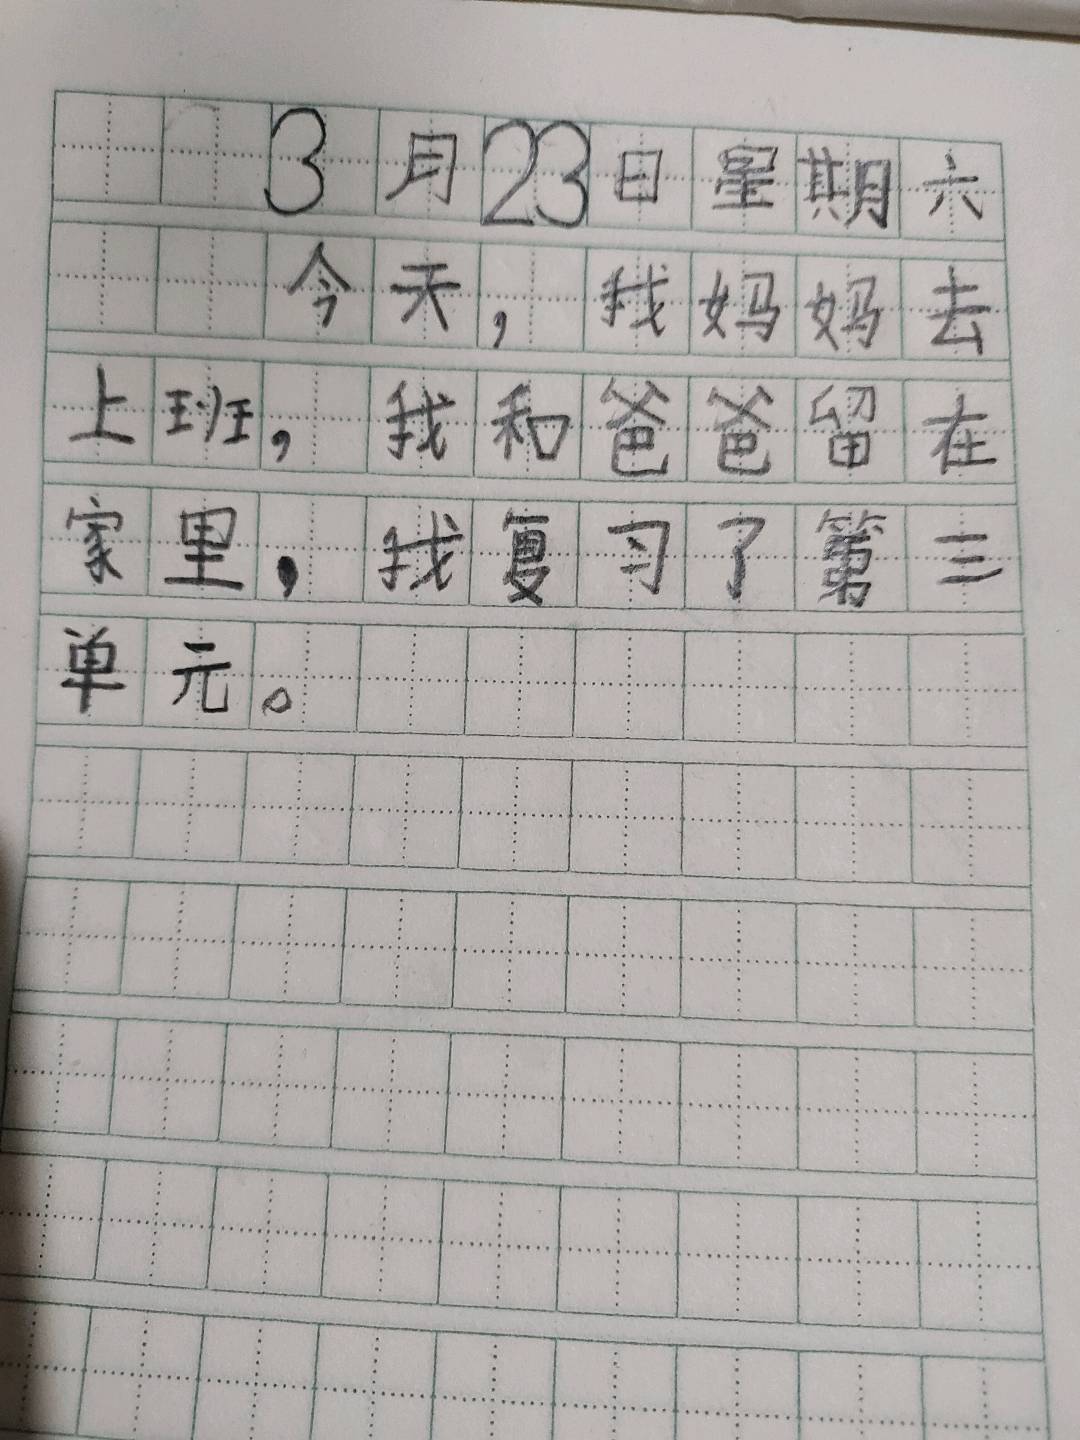 3月23日星期六
今天，我妈妈去
上班，我和爸爸留在
家里，我复习了第三
单元。